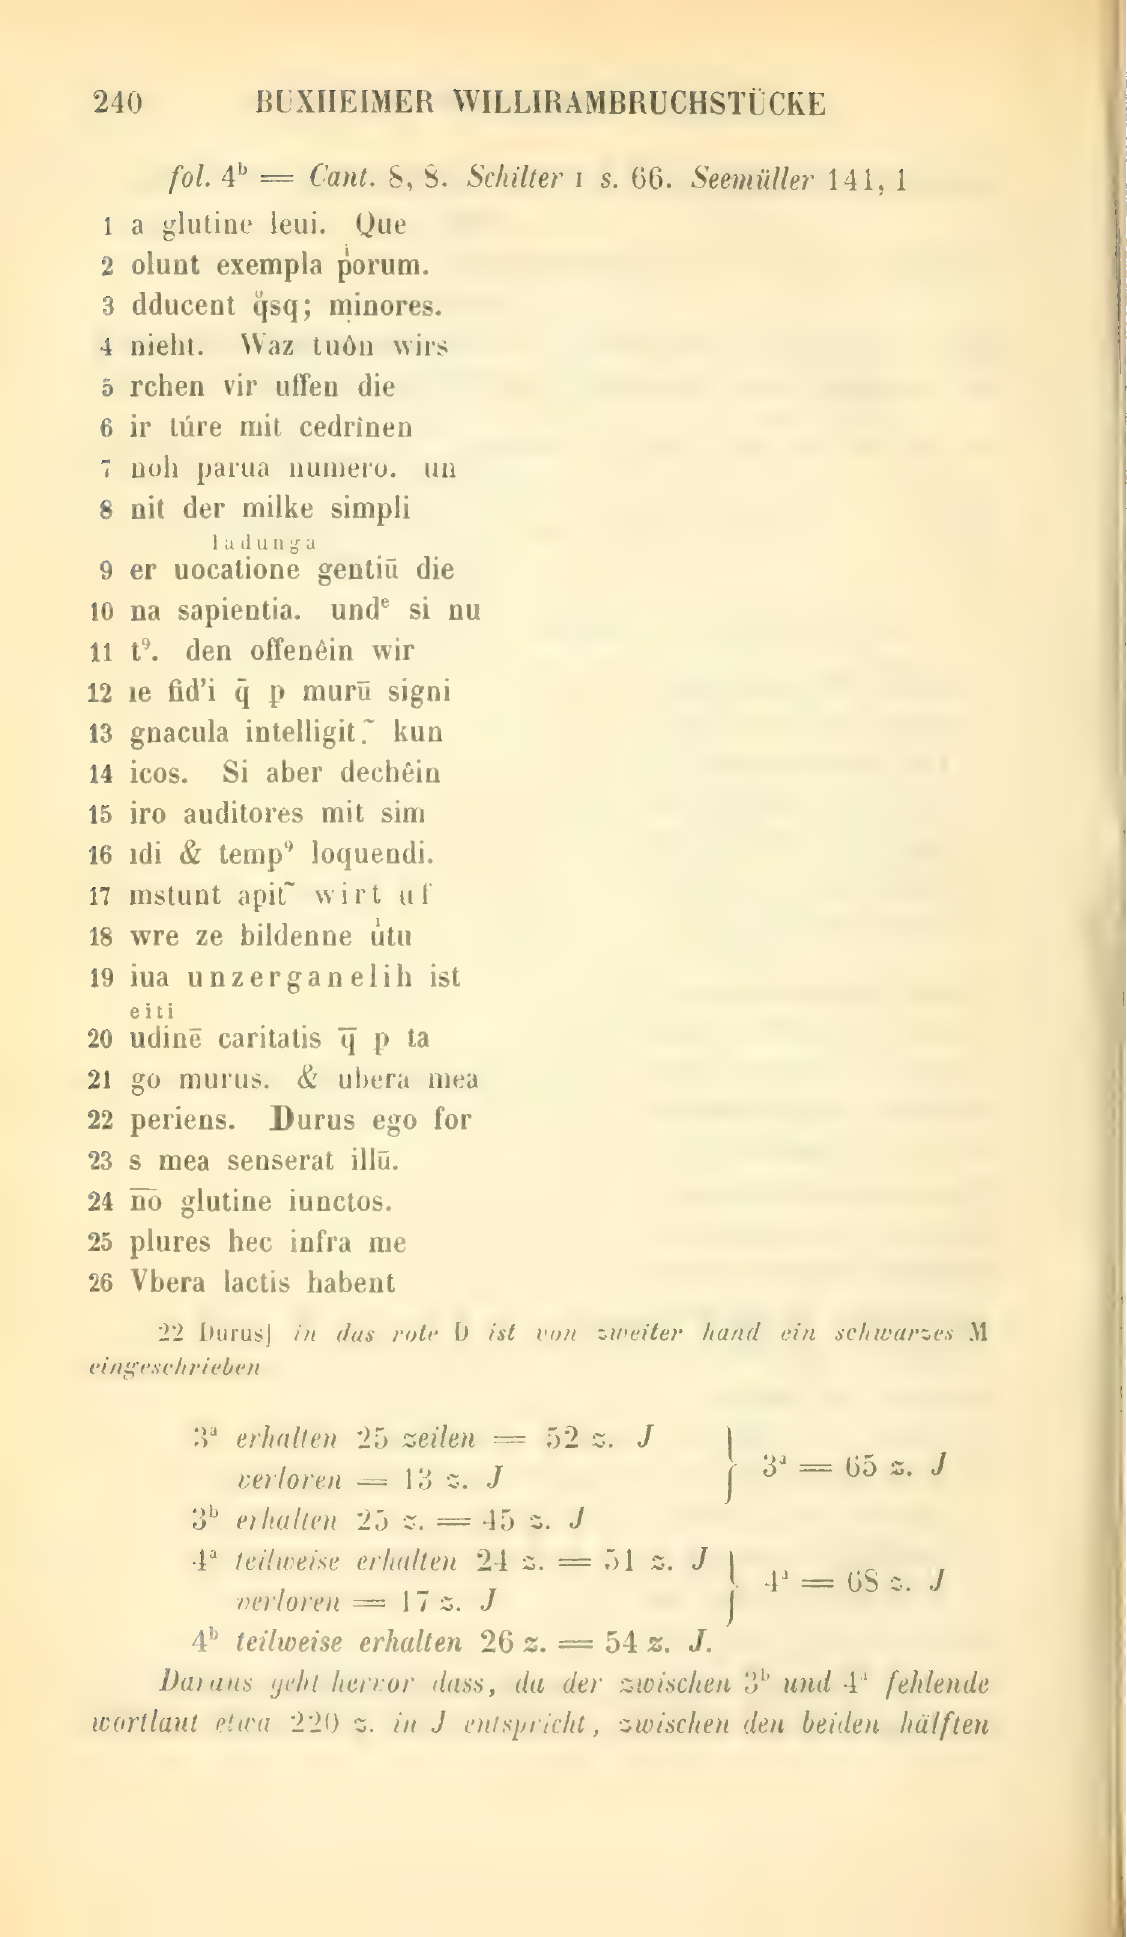 240 BUXHEIMER WILLIRAMBRUCHSTÜCKE
fol. 4ᵇ = Cant. 8, 8. Schilter I s. 66. Seemüller 141, 1
1 a glutine leui. Que
2 olunt exempla pͥorum.
3 dducent qͥsq; minores.
4 nieht. Waz tuôn wirs
5 rchen vir uffen die
6 ir túre mit cedrînen
7 noh parua numero. un
8 nit der milke simpli
ladunga
9 er uocatione gentiū die
10 na sapientia. undᵉ si nu
11 t⁹. den offenêin wir
12 ıe fid’i q̄ p murū signi
13 gnacula intelligit.̃ kun
14 icos. Si aber dechêin
15 iro auditores mit sim
16 ıdi & temp⁹ loquendi.
17 mstunt apit͂ wirt uf
18 wre ze bildenne uͥtu
19 iua unzerganelih ist
eiti
20 udinē caritatis q̄ p ta
21 go murus. & ubera mea
22 periens. Durus ego for
23 s mea senserat illū.
24 n̄o̅ glutine iunctos.
25 plures hec infra me
26 Vbera lactis habent
22 Durus] in das rote D ist von zweiter hand ein schwarzes M
eingeschrieben
3ᵃ erhalten 25 zeilen = 52 z. J
verloren = 13 z. J } 3ᵃ = 65 z. J
3ᵇ erhalten 25 z. = 45 z. J
4ᵃ teilweise erhalten 24 z. = 51 z. J
verloren = 17 z. J } 4ᵃ = 68 z. J
4ᵇ teilweise erhalten 26 z. = 54 z. J.
Daraus geht hervor dass, da der zwischen 3ᵇ und 4ᵃ fehlende
wortlaut etwa 220 z. in J entspricht, zwischen den beiden hälften